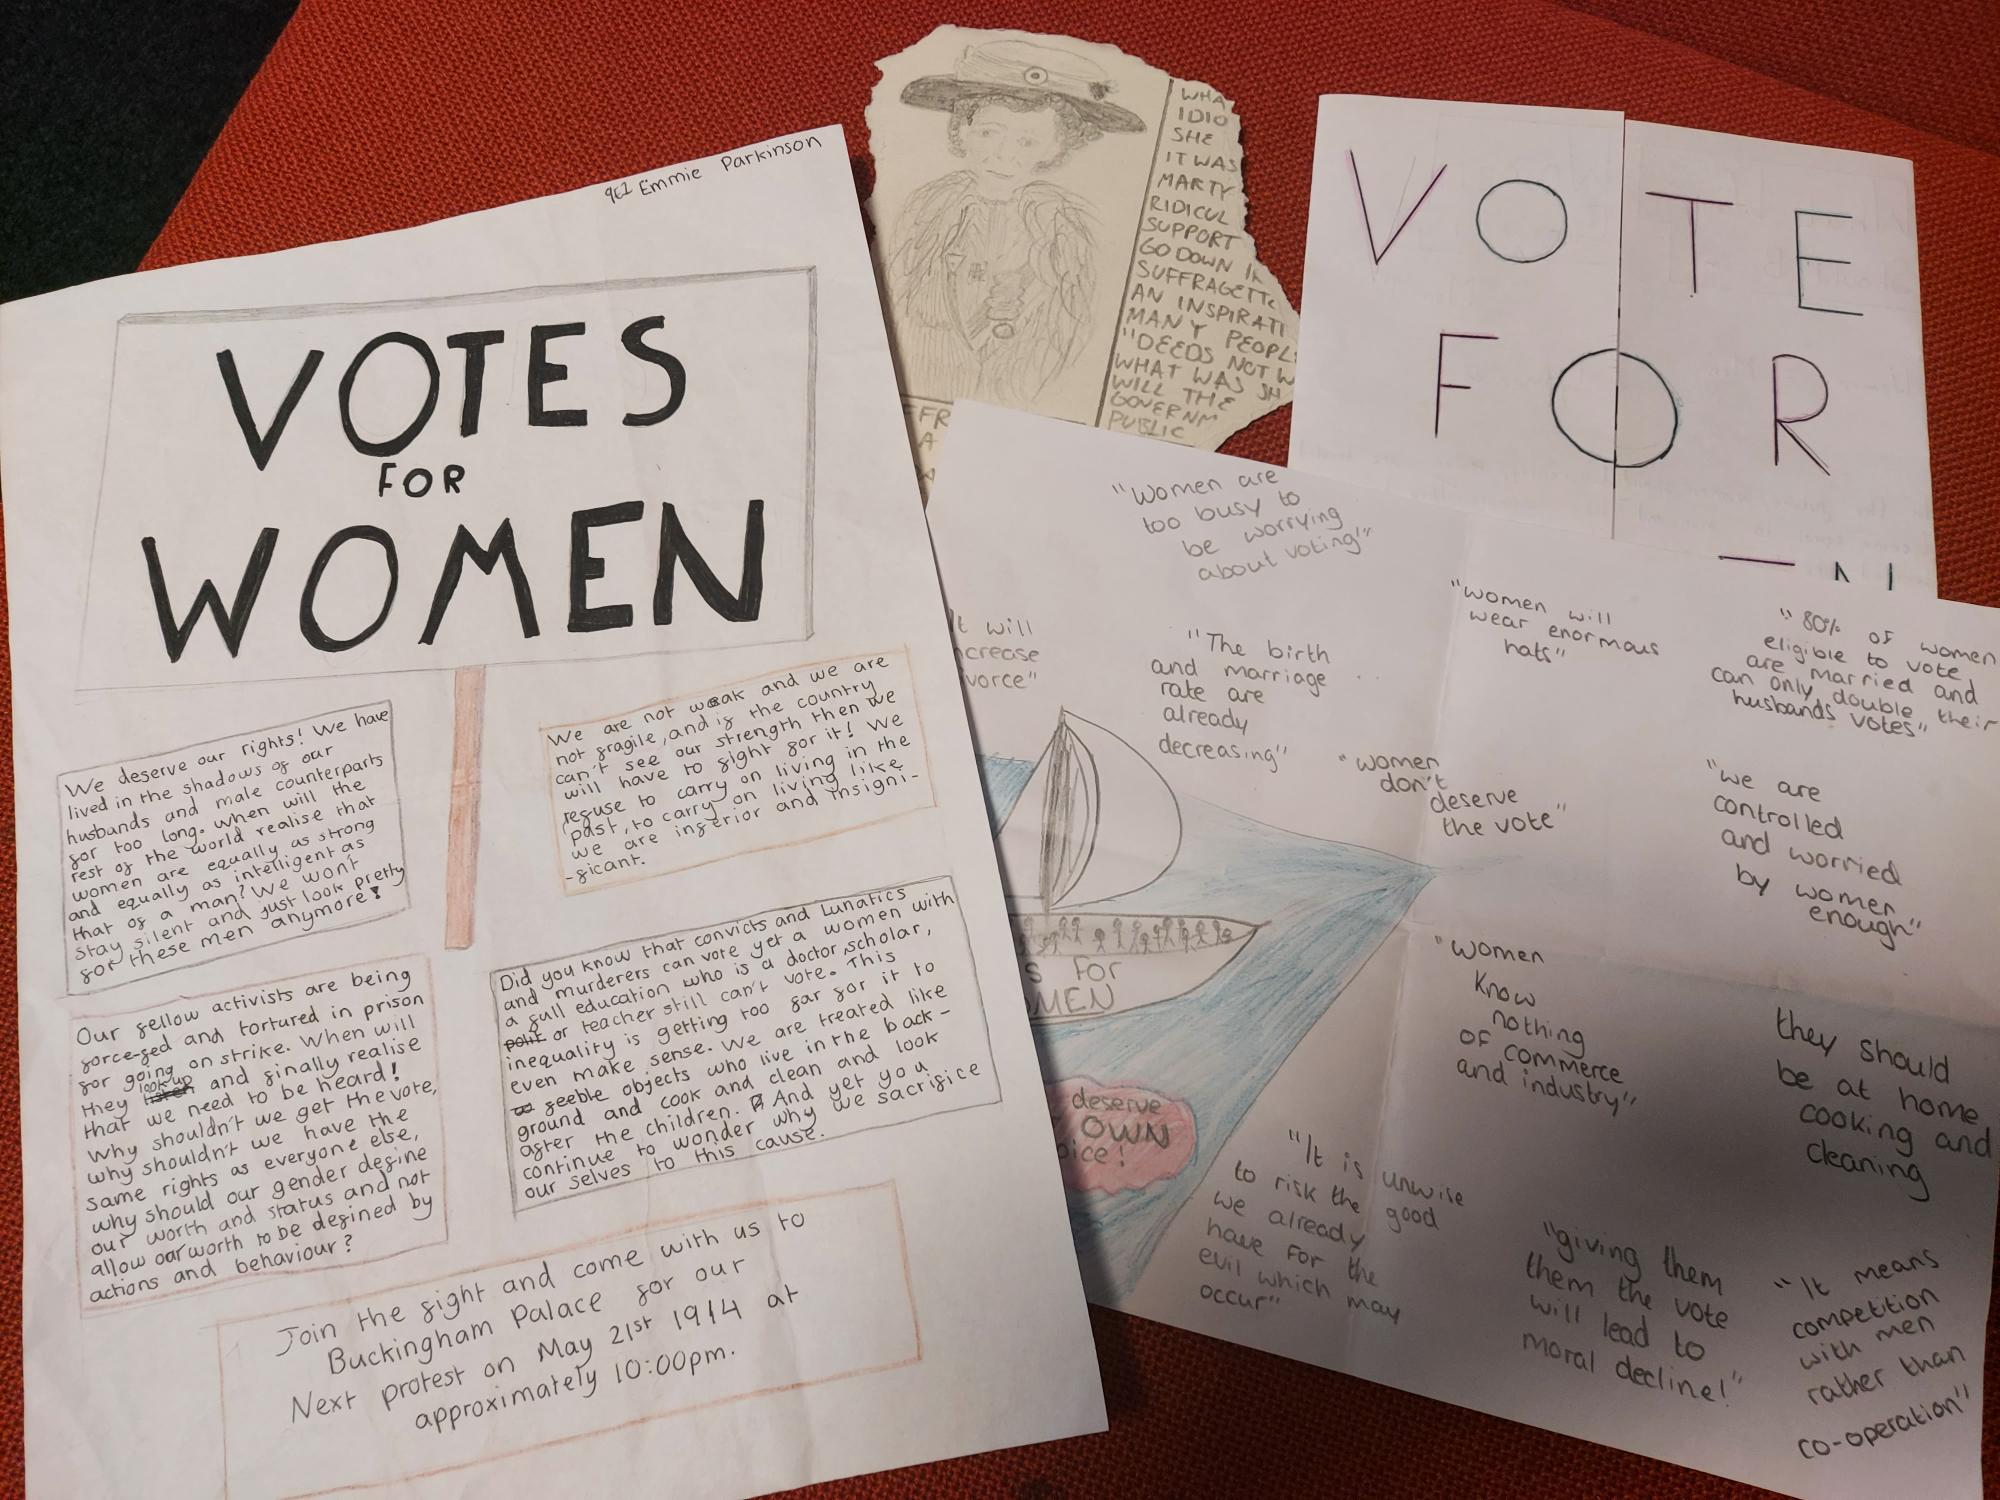 9E1 Emmie Parkinson
VOTES
FOR
WOMEN
We deserve our rights! We have
lived in the shadows of our
husbands and male counterparts
for too long. When will the
rest of the world realise that
women are equally as strong
and equally as intelligent as
that of a man? We won't
stay silent and just look pretty
for these men anymore!
We are not weak and we are
not fragile, and if the country
can't see our strength then we
will have to fight for it! We
refuse to carry on living in the
past, to carry on living like
we are inferior and insigni-
-ficant.
Our fellow activists are being
force-fed and tortured in prison
for going on strike. When will
they look up and finally realise
that we need to be heard!
Why shouldn't we get the vote,
why shouldn't we have the
same rights as everyone else,
why should our gender define
our worth and status and not
allow our worth to be defined by
actions and behaviour?
Did you know that convicts and Lunatics
and murderers can vote yet a women with
a full education who is a doctor, scholar,
or teacher still can't vote. This
inequality is getting too far for it to
even make sense. We are treated like
feeble objects who live in the back-
ground and cook and clean and look
after the children. And yet you
continue to wonder why we sacrifice
our selves to this cause.
Join the fight and come with us to
Buckingham Palace for our
Next protest on May 21st 1914 at
approximately 10:00pm.
WHA
IDIO
SHE
IT WAS
MARTY
RIDICUL
SUPPORT
GO DOWN IN
SUFFRAGETTE
AN INSPIRATI
MANY PEOPL
"DEEDS NOT W
WHAT WAS SH
WILL THE
GOVERNM
PUBLIC
EFR
A
VOTE
FOR
"Women are
too busy to
be worrying
about voting!"
It will
increase
vorce"
"The birth
and marriage
rate are
already
decreasing"
"women will
wear enormous
hats"
"80% of women
eligible to vote
are married and
can only double their
husbands votes"
"women
don't
deserve
the vote"
"we are
controlled
and worried
by women
enough"
S FOR
OMEN
"Women
know
nothing
of commerce
and industry"
they should
be at home
cooking and
cleaning
deserve
OWN
oice!
"It is unwise
to risk the good
we already
have for the
evil which may
occur"
"giving them
them the vote
will lead to
moral decline!"
"It means
competition
with men
rather than
co-operation"